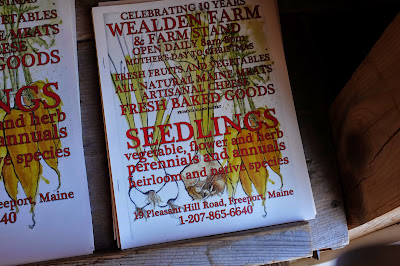 CELEBRATING 10 YEARS
WEALDEN FARM
& FARM STAND
OPEN DAILY 8am-6pm
MOTHER'S DAY TO CHRISTMAS
FRESH FRUITS AND VEGETABLES
ALL NATURAL MAINE MEATS
ARTISANAL CHEESE
FRESH BAKED GOODS
SEEDLINGS
vegetable, flower and herb
perennials and annuals
heirloom and native species
Pleasant Hill Road, Freeport, Maine
1-207-865-6640
VEGETABLES
MAINE MEATS
CHEESE
GOODS
and herb
annuals
species
Freeport, Maine